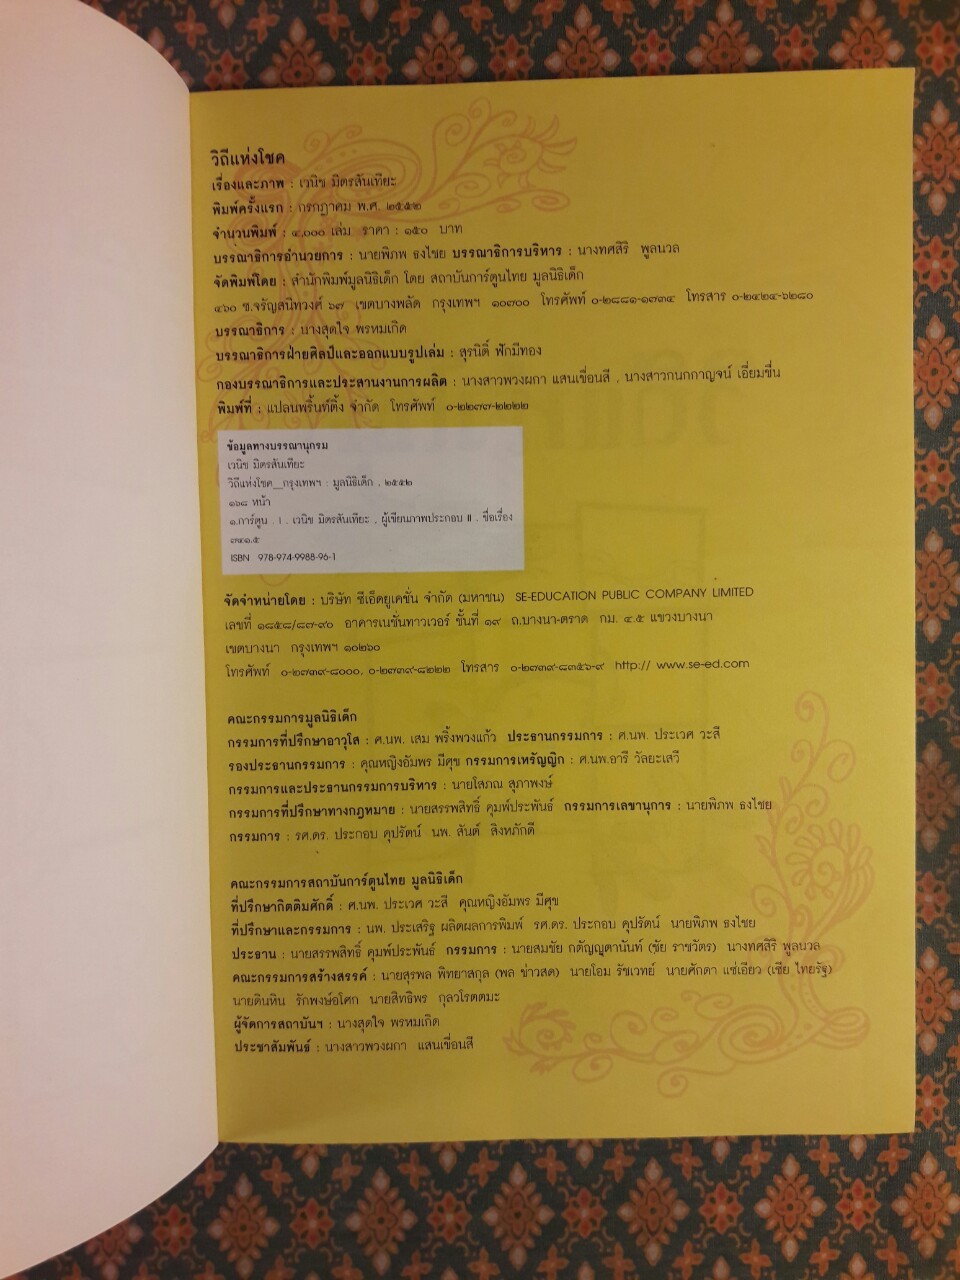 วิถีแห่งโชค
เรื่องและภาพ : เวนิช มิตรสันเทียะ
พิมพ์ครั้งแรก : กรกฎาคม พ.ศ. ๒๕๕๒
จำนวนพิมพ์ : ๔,๐๐๐ เล่ม ราคา : ๑๕๐ บาท
บรรณาธิการอำนวยการ : นายพิภพ ธงไชย บรรณาธิการบริหาร : นางทศสิริ พูลนวล
จัดพิมพ์โดย : สำนักพิมพ์มูลนิธิเด็ก โดย สถาบันการ์ตูนไทย มูลนิธิเด็ก
๔๖๐ ซ.จรัญสนิทวงศ์ ๖๗ เขตบางพลัด กรุงเทพฯ ๑๐๗๐๐ โทรศัพท์ ๐-๒๘๘๑-๑๗๓๔ โทรสาร ๐-๒๔๒๔-๖๒๘๐
บรรณาธิการ : นางสุดใจ พรหมเกิด
บรรณาธิการฝ่ายศิลป์และออกแบบรูปเล่ม : สุรนิติ์ ฟักมีทอง
กองบรรณาธิการและประสานงานการผลิต : นางสาวพวงผกา แสนเขื่อนสี , นางสาวกนกกาญจน์ เอี่ยมชื่น
พิมพ์ที่ : แปลนพริ้นท์ติ้ง จำกัด โทรศัพท์ ๐-๒๒๗๗-๒๒๒๒
ข้อมูลทางบรรณานุกรม
เวนิช มิตรสันเทียะ
วิถีแห่งโชค__กรุงเทพฯ : มูลนิธิเด็ก , ๒๕๕๒
๑๖๘ หน้า
๑.การ์ตูน . I . เวนิช มิตรสันเทียะ , ผู้เขียนภาพประกอบ II . ชื่อเรื่อง
๗๔๑.๕
ISBN 978-974-9988-96-1
จัดจำหน่ายโดย : บริษัท ซีเอ็ดยูเคชั่น จำกัด (มหาชน) SE-EDUCATION PUBLIC COMPANY LIMITED
เลขที่ ๑๘๕๘/๘๗-๙๐ อาคารเนชั่นทาวเวอร์ ชั้นที่ ๑๙ ถ.บางนา-ตราด กม. ๔.๕ แขวงบางนา
เขตบางนา กรุงเทพฯ ๑๐๒๖๐
โทรศัพท์ ๐-๒๗๓๙-๘๐๐๐, ๐-๒๗๓๙-๘๒๒๒ โทรสาร ๐-๒๗๓๙-๘๓๕๖-๙ http:// www.se-ed.com
คณะกรรมการมูลนิธิเด็ก
กรรมการที่ปรึกษาอาวุโส : ศ.นพ. เสม พริ้งพวงแก้ว ประธานกรรมการ : ศ.นพ. ประเวศ วะสี
รองประธานกรรมการ : คุณหญิงอัมพร มีศุข กรรมการเหรัญญิก : ศ.นพ.อารี วัลยะเสวี
กรรมการและประธานกรรมการบริหาร : นายโสภณ สุภาพงษ์
กรรมการที่ปรึกษาทางกฎหมาย : นายสรรพสิทธิ์ คุมพ์ประพันธ์ กรรมการเลขานุการ : นายพิภพ ธงไชย
กรรมการ : รศ.ดร. ประกอบ คุปรัตน์ นพ. สันต์ สิงหภักดี
คณะกรรมการสถาบันการ์ตูนไทย มูลนิธิเด็ก
ที่ปรึกษากิตติมศักดิ์ : ศ.นพ. ประเวศ วะสี คุณหญิงอัมพร มีศุข
ที่ปรึกษาและกรรมการ : นพ. ประเสริฐ ผลิตผลการพิมพ์ รศ.ดร. ประกอบ คุปรัตน์ นายพิภพ ธงไชย
ประธาน : นายสรรพสิทธิ์ คุมพ์ประพันธ์ กรรมการ : นายสมชัย กตัญญุตานันท์ (ชัย ราชวัตร) นางทศสิริ พูลนวล
คณะกรรมการสร้างสรรค์ : นายสุรพล พิทยาสกุล (พล ข่าวสด) นายโอม รัชเวทย์ นายศักดา แซ่เอียว (เซีย ไทยรัฐ)
นายดินหิน รักพงษ์อโศก นายสิทธิพร กุลวโรตตมะ
ผู้จัดการสถาบันฯ : นางสุดใจ พรหมเกิด
ประชาสัมพันธ์ : นางสาวพวงผกา แสนเขื่อนสี